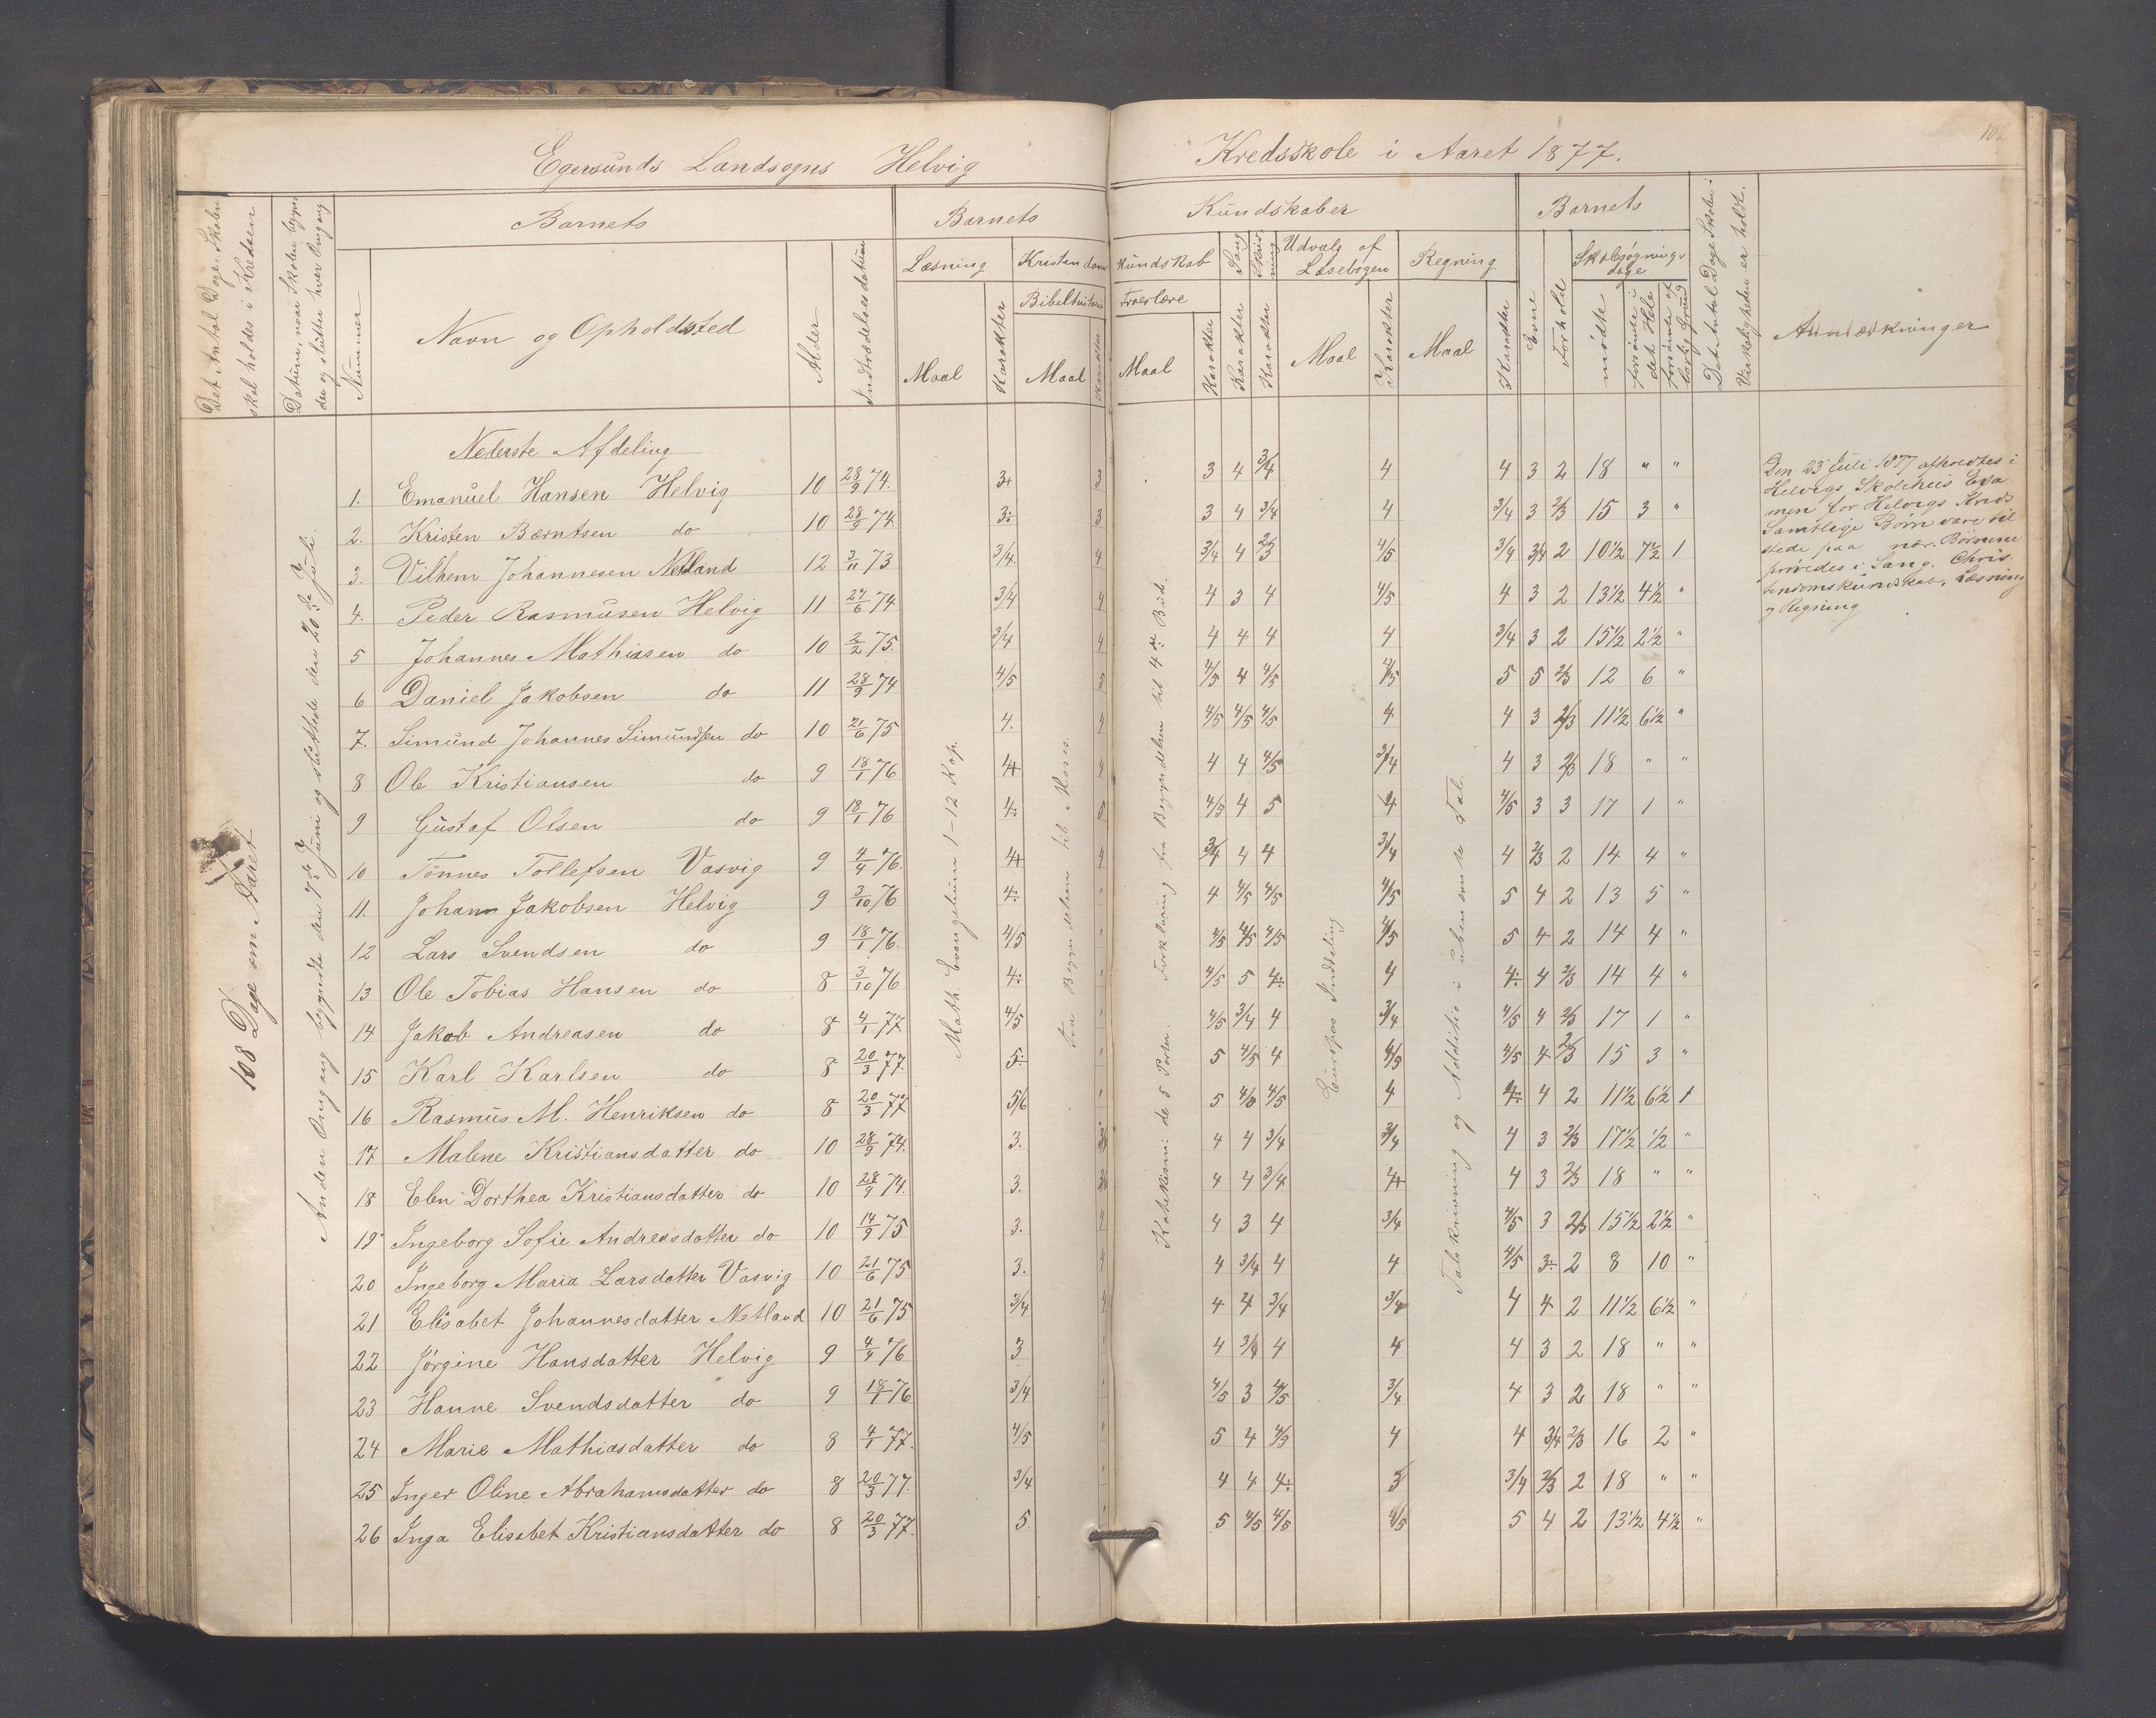 Egersunds Landsogns Helvig Kredsskole i Aaret 1877.
102
Det Antal Dage, Skolen skal holdes i Kredsen
Datum, naar Skolen begynder og slutter hver Omgang
Nummer
Barnets
Navn og Opholdssted
Alder
Indtrædelsesdatum
Barnets Kundskaber
Læsning
Maal
Karakter
Kristendomskundskab
Bibelhistorie
Maal
Karakter
Troeslære
Maal
Karakter
Sang
Karakter
Skrivning
Karakter
Udvalg af Læsebogen
Maal
Karakter
Regning
Maal
Karakter
Barnets
Evne
Forhold
Skolesøgningsdage
mødte
forsømte i det Hele
forsømte af lovlig Grund
Det Antal Dage Skolen i Virkeligheden er holdt.
Anmærkninger
108 Dage om Aaret
Anden Omgang begyndte den 7de Juni og sluttede den 20de Juli.
Math. Evangelium 1-12 Kap.
Fra Begyndelsen til Moses.
Katekismi de 5 Parter. Forklaring fra Begyndelsen til 4de Bud.
Europas Inddeling
Talskrivning og Addition i ubenævnte Tal.
Nederste Afdeling
1. Emanuel Hansen Helvig 10 28/9 74. 3+ 3 3 4 3/4 4 4 3 2 18 " "
2. Kristen Bærntsen do 10 28/9 74. 3: 3 3 4 3/4 4 3/4 3 2/3 15 3 "
3. Vilhem Johannesen Netland 12 3/11 73 3/4 4 3/4 4 2/3 4/5 3/4 3/4 2 10½ 7½ 1
4. Peder Rasmusen Helvig 11 27/6 74 3/4 4 4 3 4 4/5 4 3 2 13½ 4½ "
5 Johannes Mathiasen do 10 2/2 75. 3/4 4 4 4 4 4 3/4 3 2 15½ 2½ "
6 Daniel Jakobsen do 11 28/9 74 4/5 5 4/5 4 4/5 4/5 5 5 2/3 12 6 "
7. Simund Johannes Simundsen do 10 21/6 75 4. 4 4/5 4/5 4/5 4 4 3 2/3 11½ 6½ "
8 Ole Kristiansen do 9 18/1 76 4+ 4 4 4 4/5 3/4 4 3 2/3 18 " "
9 Gustaf Olsen do 9 18/1 76 4: 5 4/5 4 5 4 4/5 3 3 17 1 "
10 Tønnes Tollefsen Vasvig 9 4/4 76. 4+ 4 3/4 4 4 3/4 4 2/3 2 14 4 "
11. Johan Jakobsen Helvig 9 3/10 76 4: " 4 4/5 4/5 4/5 5 4 2 13 5 "
12 Lars Svendsen do 9 18/1 76. 4/5 " 4/5 4/5 4/5 4/5 5 4 2 14 4 "
13 Ole Tobias Hansen do 8 3/10 76 4: " 4/5 5 4: 4 4: 4 2/3 14 4 "
14 Jakob Andreasen do 8 4/1 77 4/5 " 4/5 3/4 4 3/4 4/5 4 2/3 17 1 "
15 Karl Karlsen do 8 20/3 77. 5: " 5 4/5 4 4/5 4/5 4 2/3 15 3 "
16 Rasmus M. Henriksen do 8 20/3 77 5/6 " 5 4/5 4/5 4 4: 4 2 11½ 6½ 1
17 Malene Kristiansdatter do 10 28/9 74. 3. 3/4 4 4 3/4 3/4 4 3 2/3 17½ ½ "
18 Elen Dorthea Kristiansdatter do 10 28/9 74. 3. 3/4 4 4 3/4 4+ 4 3 2/3 18 " "
19 Ingeborg Sofie Andreasdatter do 10 14/9 75 3. 4 4 3 4 3/4 4/5 3 2/3 15½ 2½ "
20 Ingeborg Maria Larsdatter Vasvig 10 21/6 75 3. 4 4 3/4 4 4 4/5 3: 2 8 10 "
21 Elisabet Johannesdatter Netland 10 21/6 75 3/4 4 4 4 3/4 3/4 4 4 2 11½ 6½ "
22 Jørgine Hansdatter Helvig 9 4/4 76 3 " 4 3/4 4 4 4 3 2 18 " "
23 Hanne Svendsdatter do 9 18/1 76 3/4 " 4/5 3 4/5 3/4 4 3 2 18 " "
24 Marie Mathiasdatter do 8 4/1 77. 4/5 " 5 4 4/5 4 4 3/4 2/3 16 2 "
25 Inger Oline Abrahamsdatter do 8 20/3 77. 3/4 " 4 4 4: 3 3/4 2/3 2 18 " "
26 Inga Elisabet Kristiansdatter do 8 20/3 77. 5 " 5 4/5 4/5 4/5 5 4 2 13½ 4½ "
Den 23 Juli 1877 afholdtes i
Helvigs Skolehus Exa
men for Helvigs Kreds
Samtlige Børn vare til
stede paa nær. Børnene
prøvedes i Sang, Chris
tendomskundskab, Læsning
og Regning